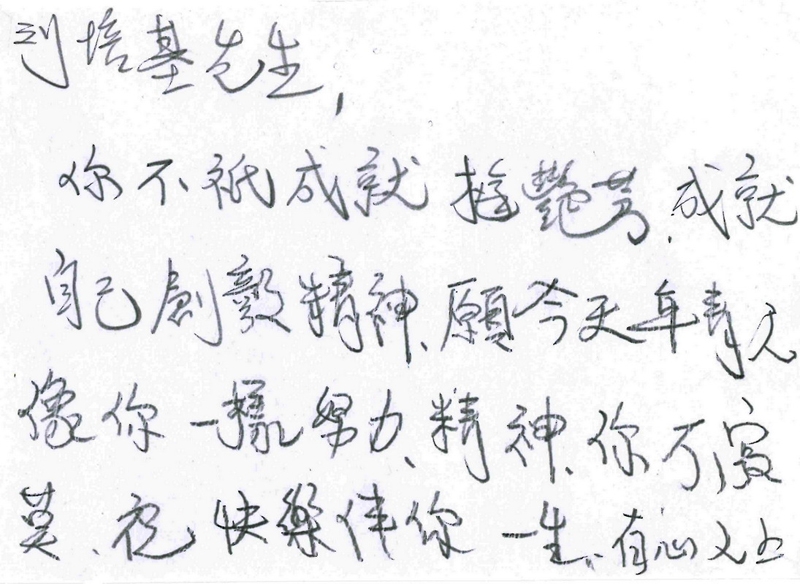 刘培基先生,
你不祇成就 梅艷芳、成就
自己創毅精神、願今天年青人
像你一樣努力、精神、你不寂
莫、祝 快樂伴你 一生、有心人上